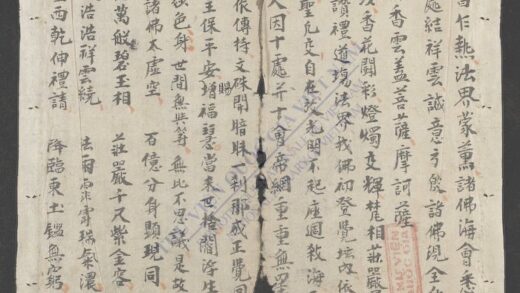 乍爇法界蒙薰諸佛海會悉
處結祥雲誠意方殷諸佛現全
香雲蓋菩薩摩訶薩
香花闘彩燈燭交輝梵相莊嚴
讚禮道場法界我佛初登覺場内依
聖凡交自在文光明不起座週教海
人因十處并十會帝網重重無
依傳持文殊開暗昧一刹那成正覺
主保平安增福慧當來世檢閱浮生
色身世間無與等無比不思議是故
諸佛大虛空 百億分身顯現同
萬般碧玉相 莊嚴千尺紫金容
浩浩祥雲繞 法雨霏霏瑞氣濃
西乾伸禮請 降臨東土鑒無窮